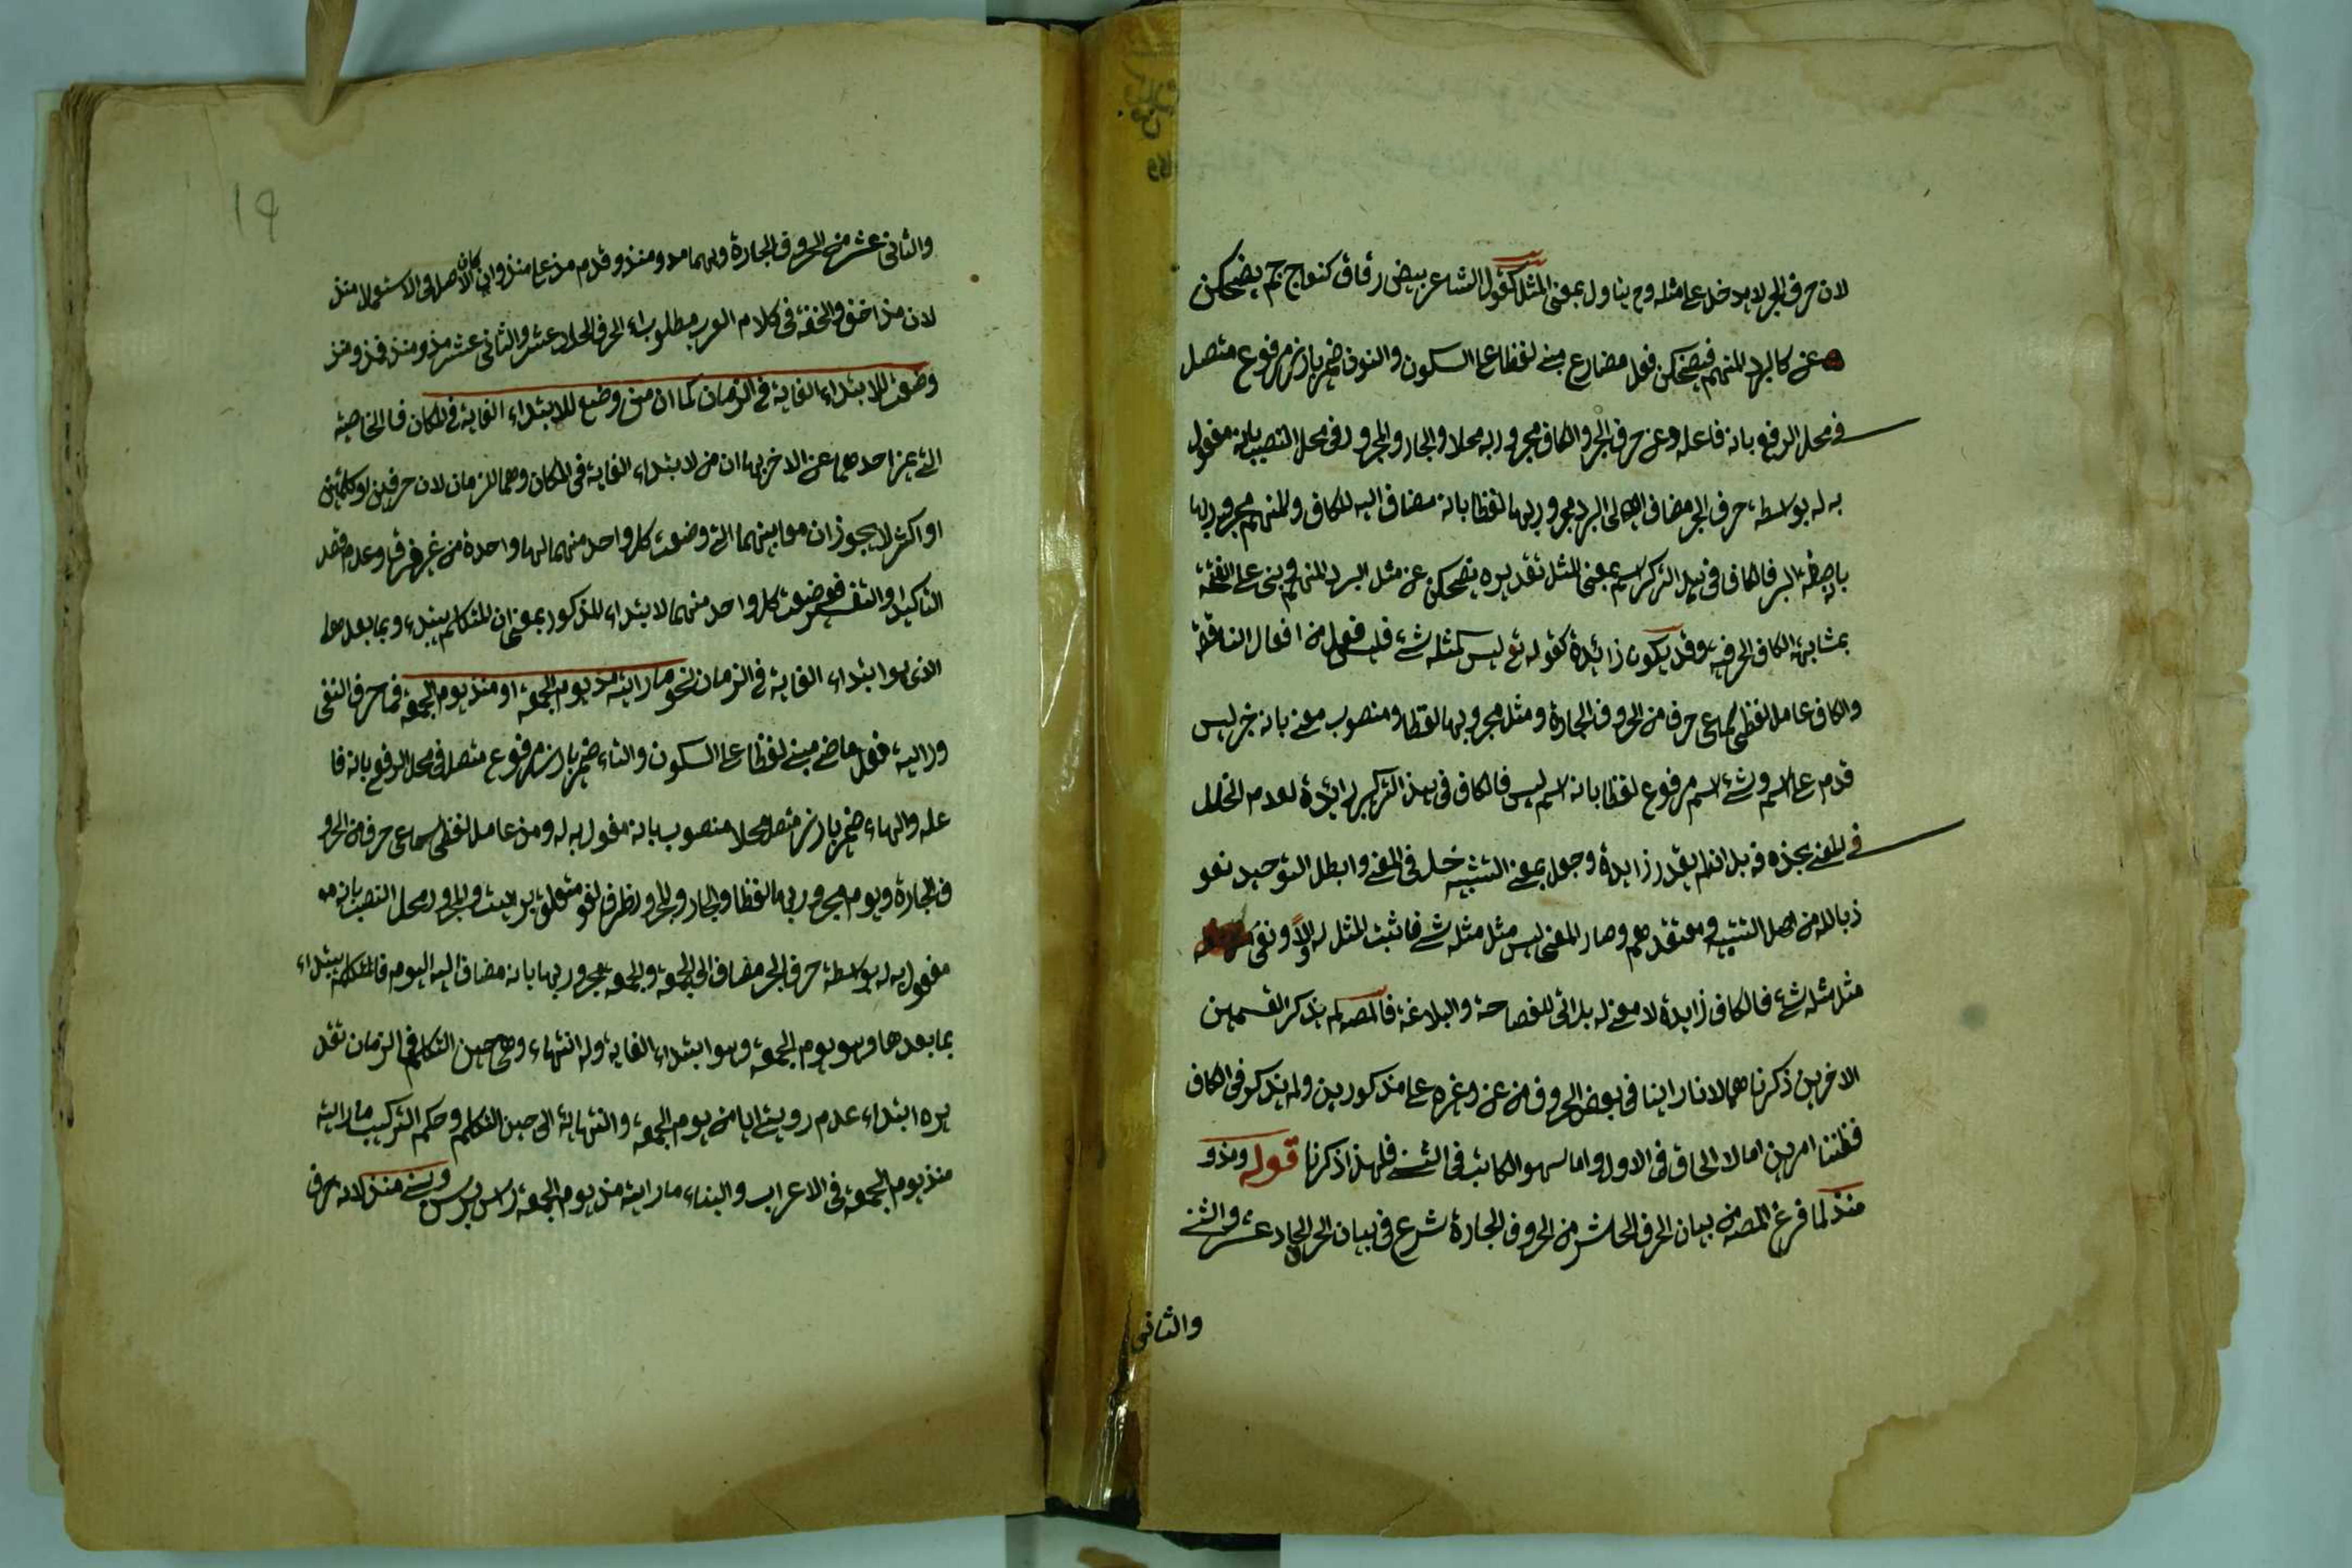 لان حرف الجر لا يدخل على مثله وح يناول بمعنى المثل كقول الشاعر بيض رقاق كنعاج جم يضحكن
عن كالبرد المنهم فيضحكن فعل مضارع مبنى لفظا على السكون والنون ضمير بارز مرفوع متصل
فى محل الرفع بانه فاعله وعن حرف الجر والكاف مجرور به محلا والجار والمجرور فى محل النصب بانه مفعول
به له بواسطة حرف الجر مضاف الى البرد مجرور بها لفظا بانه مضاف اليه للكاف والمنهم مجرور بها
بانه صفة البرد فالكاف فى هذا التركيب اسم بمعنى المثل تقديره يضحكن عن مثل البرد المنهم وبنى على الفتحة
بمشابهة الكاف الحرفية وقد يكون زائدة كقوله تع ليس كمثله شئ فليس فعل من افعال الناقصة
والكاف عامل لفظى سماعى حرف من الحروف الجارة ومثل مجرور بها لفظا ومنصوب معنى بانه خبر ليس
قدم على الاسم وشئ اسم مرفوع لفظا بانه اسم ليس فالكاف فى هذا التركيب زائدة لعدم الخلل
فى المعنى بحذفه بل ان لم يقدر زايدة وجعل بمعنى التشبيه خل فى المعنى وابطل التوحيد نعو
ذ بالله من اهل التشبيه ومعتقدهم وصار المعنى ليس مثل مثله شئ فاثبت المثل له اولا ونفى
مثل مثله شئ فالكاف زايدة لا معنى له بل اتى للفصاحة والبلاغة فالمصه لم يذكر القسمين
الاخرين ذكرناهما لانا راينا فى بعض الحروف من عن وغيره على مذكورين ولم يذكر فى الكاف
فظننا امرين اما لا الحاق فى الاول واما سهو الكاتب فى الثنى فلهذا ذكرنا قوله ومذ و
منذ لما فرغ المصه من بيان الحرف العاشر من الحروف الجارة شرع فى بيان الحرف الحاد عشر والثنى
والثانى
19
والثانى عشر من الحروف الجارة وهما مذ ومنذ وقدم مذ على منذ وان كان الاصل فى الاستعمال منذ
لان مذ اخف والخفة فى كلام العرب مطلوب اء الحرف الحاد عشر والثانى عشر مذ ومنذ فمذ ومنذ
وضعت للابتداء الغاية فى الزمان كما ان من وضع للابتداء الغاية فى المكان فالخاصية
التى يميز احدهما عن الاخر بها ان من لابتداء الغاية فى المكان وهما للزمان لان حرفين او كلمتين
او اكثر لا يجوز ان معانيهما التى وضعت كل واحد منهما لها واحدة من غير فرق وعدم قصد
التاكيد او التفسير فوضعت كل واحد منهما لابتداء المذكور بمعنى ان المتكلم يبتدء وبما بعدهما
الذى هو ابتداء الغاية فى الزمان نحو ما رايته مذ يوم الجمعة او منذ يوم الجمعة فما حرف النفى
ورايت فعل ماضى مبنى لفظا على السكون والتاء ضمير بارز مرفوع متصل فى محل الرفع بانه فا
عله والهاء ضمير بارز متصل محلا منصوب بانه مفعول به له ومذ عامل لفظى سماعى حرف من الحرو
ف الجارة ويوم مجرور بها لفظا والجار والمجرور ظرف لغو متعلق برايت والمجرور محل النصب بانه مف
مفعول به له بواسطة حرف الجر مضاف الى الجمعة والجمعة مجرور بها بانه مضاف اليه اليوم فالمتكلم يبتداء
بما بعدها وهو يوم الجمعة وهو ابتداء الغاية وله انتهاء وهى حين التكلم فى الزمان تقد
يره ابتداء عدم رويتى اياه من يوم الجمعة وانتهائه الى حين التكلم وحكم التركيب ما رايته
منذ يوم الجمعة فى الاعراب والبناء ما رايته مذ يوم الجمعة وبنى منذ لانه حرف